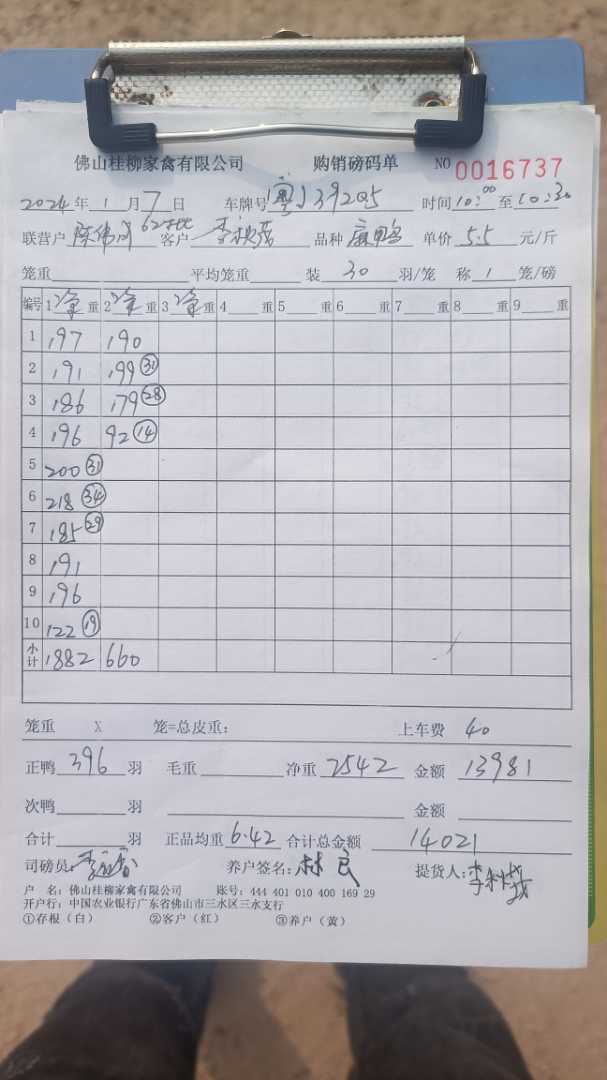 佛山桂柳家禽有限公司 购销磅码单 NO 0016737
2024年1月7日 车牌号粤J39205 时间10:00至10:30
联营户陈伟 62批 客户李 品种麻鸭 单价5.5元/斤
笼重 平均笼重 装30羽/笼 称1笼/磅
编号 1净重 2净重 3净重 4重 5重 6重 7重 8重 9重
1 197 190
2 191 199㉛
3 186 179㉘
4 196 92⑭
5 200㉛
6 218㉞
7 185㉙
8 191
9 196
10 122⑲
小计 1882 660
笼重 X 笼=总皮重: 上车费 40
正鸭396羽 毛重 净重2542 金额13981
次鸭 羽 金额
合计 羽 正品均重6.42 合计总金额14021
司磅员: 李 养户签名:林民 提货人:李
户 名: 佛山桂柳家禽有限公司 账号: 444 401 010 400 169 29
开户行: 中国农业银行广东省佛山市三水区三水支行
①存根(白) ②客户(红) ③养户(黄)